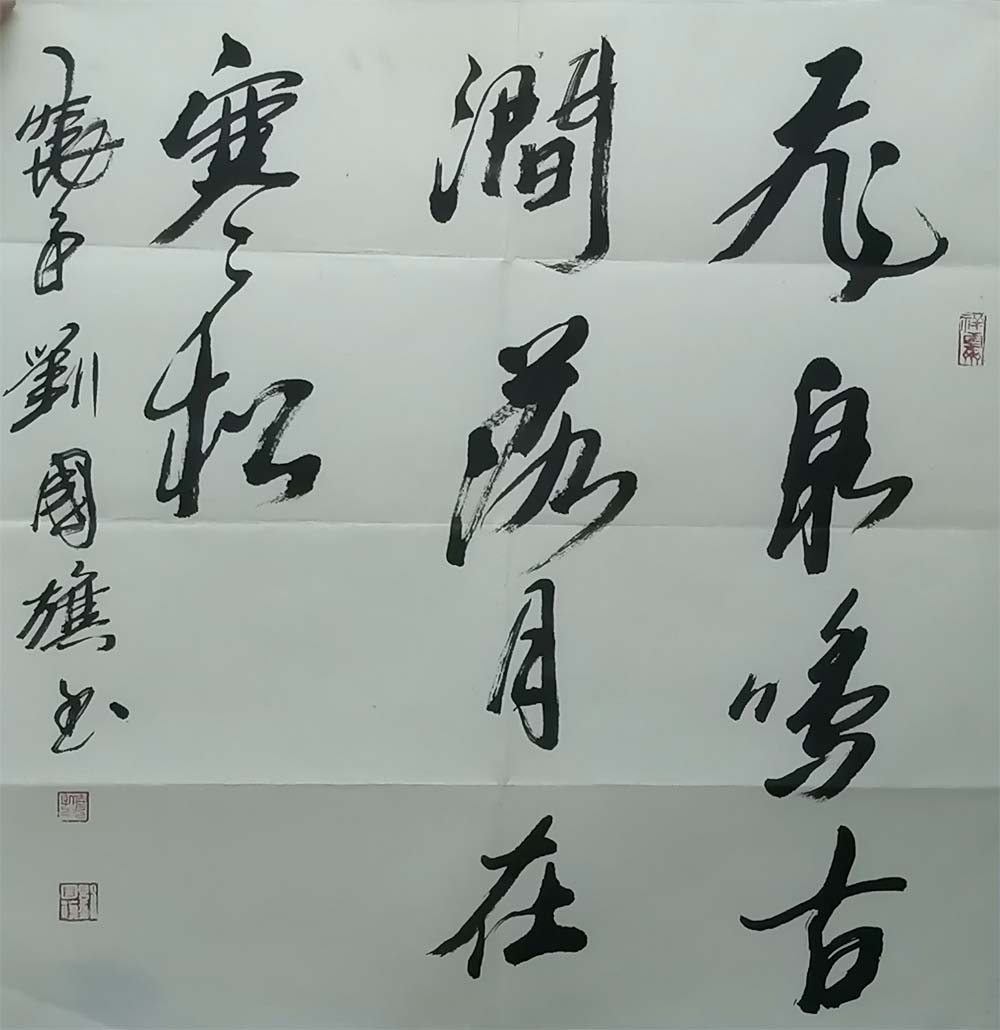 飛泉鳴古
澗落月在
寒松
子劉國旗书